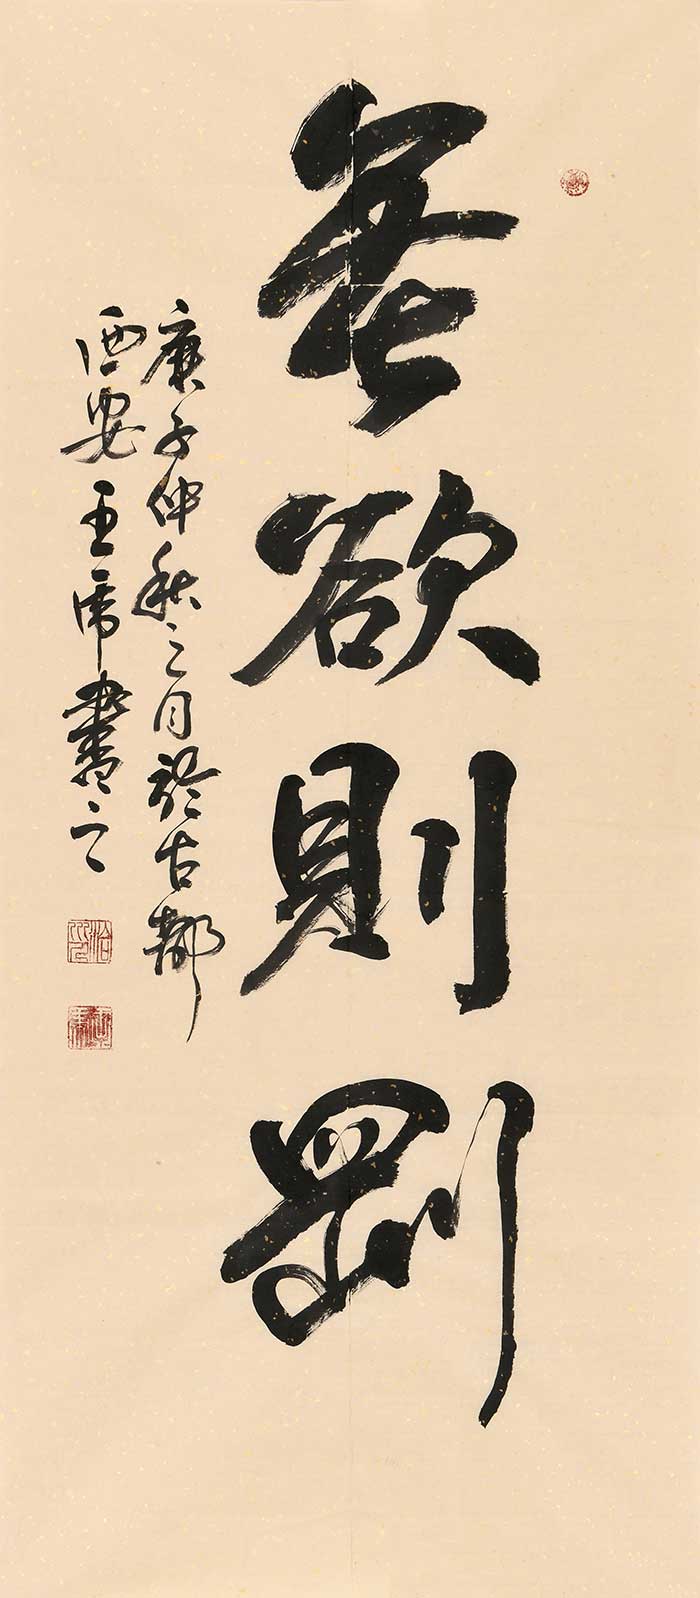 無欲則剛
庚子仲秋之月於古都
西安王席書之